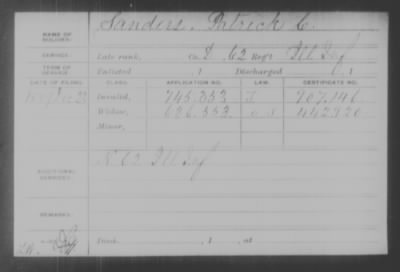 NAME OF SOLDIER: Sanders, Patrick C.
SERVICE: Late rank, Co. D, 62 Reg't Ill Inf
TERM OF SERVICE: Enlisted , 1 Discharged , 1
DATE OF FILING. CLASS. APPLICATION NO. LAW. CERTIFICATE NO.
Invalid, 745.353 707.146
Widow, 636.553 442.920
Minor,
ADDITIONAL SERVICES: 62 Ill Inf
REMARKS:
Died , 1 , at